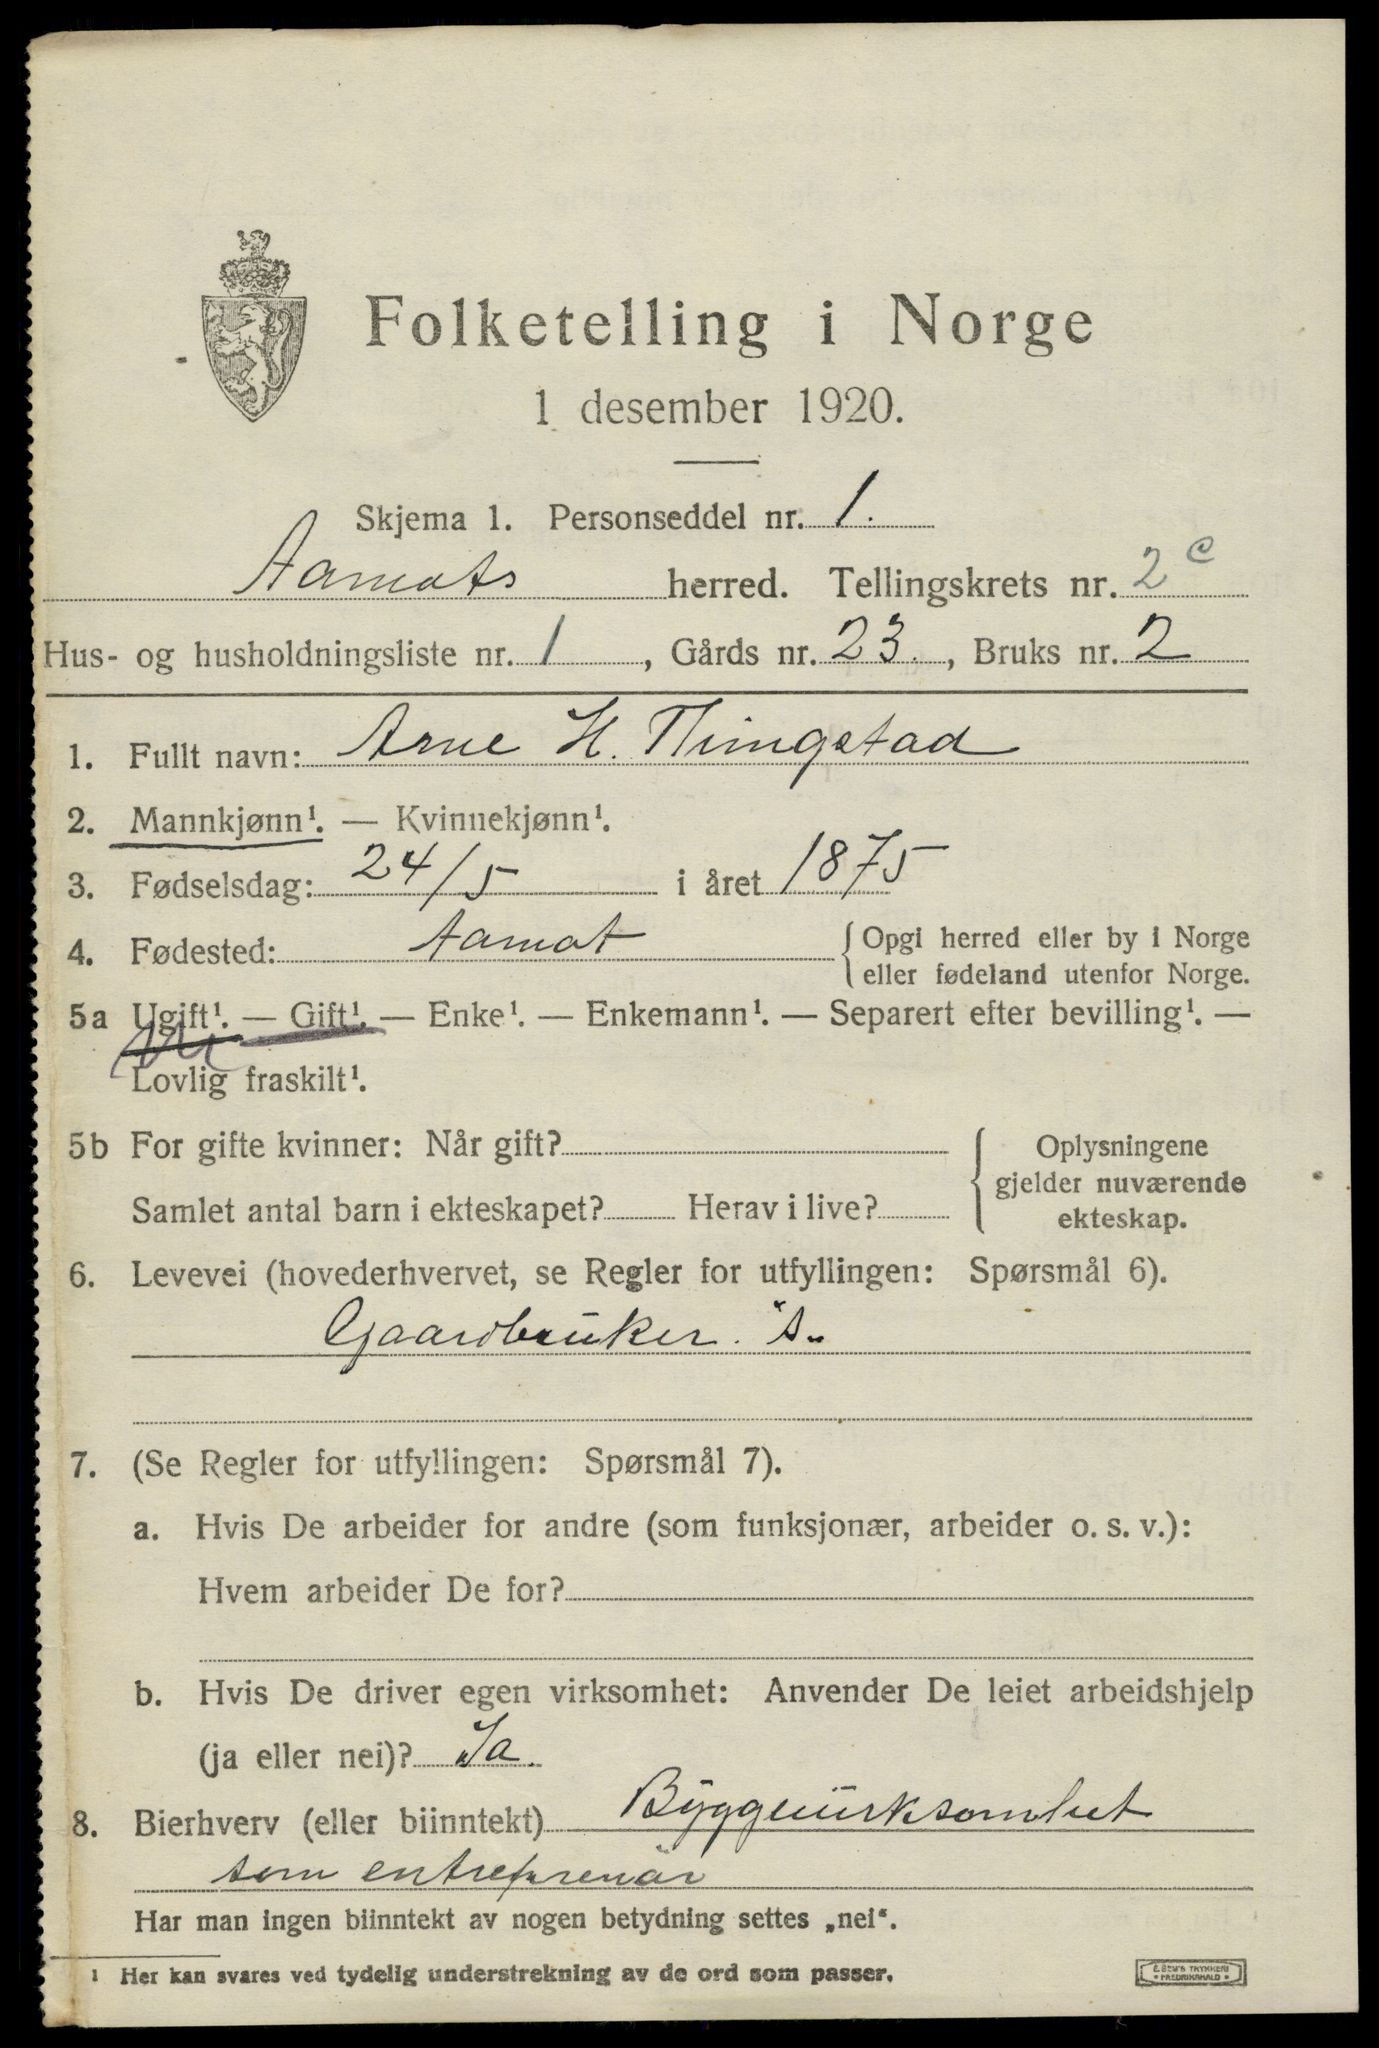 Folketelling i Norge
1 desember 1920.
Skjema 1. Personseddel nr. 1.
Aamots herred. Tellingskrets nr. 2 c
Hus- og husholdningsliste nr. 1, Gårds nr. 23., Bruks nr. 2
1. Fullt navn: Arne H. Thingstad
2. Mannkjønn¹. — Kvinnekjønn¹.
3. Fødselsdag: 24/5 i året 1875
4. Fødested: Aamot {Opgi herred eller by i Norge
eller fødeland utenfor Norge.
5a Ugift¹. — Gift¹. — Enke¹. — Enkemann¹. — Separert efter bevilling¹. —
Lovlig fraskilt¹.
5b For gifte kvinner: Når gift? { Oplysningene
gjelder nuværende
Samlet antal barn i ekteskapet? Herav i live?
ekteskap.
6. Levevei (hovederhvervet, se Regler for utfyllingen: Spørsmål 6).
Gaardbruker. "s"
7. (Se Regler for utfyllingen: Spørsmål 7).
a. Hvis De arbeider for andre (som funksjonær, arbeider o. s. v.):
Hvem arbeider De for?
b. Hvis De driver egen virksomhet: Anvender De leiet arbeidshjelp
(ja eller nei)? Ja.
8. Bierhverv (eller biinntekt) Byggeuirksomhet
som entreprenär
Har man ingen biinntekt av nogen betydning settes „nei“.
1 Her kan svares ved tydelig understrekning av de ord som passer.
E. SEM'S TRYKKERI
• FREDRIKSHALD •